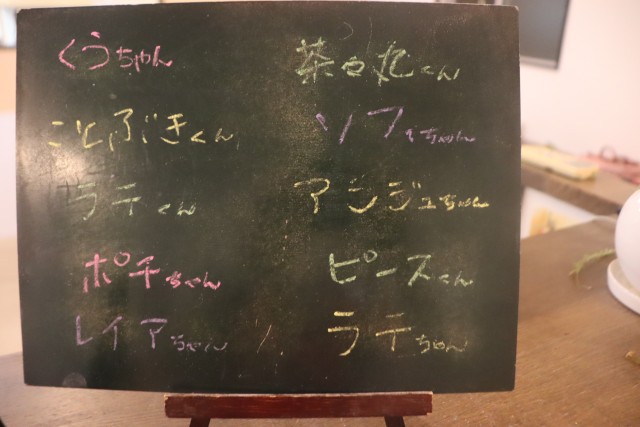 くうちゃん
ことぶきくん
ラテくん
ポチちゃん
レイアちゃん
茶々丸くん
ソフィちゃん
アンジュちゃん
ピースくん
ラテちゃん